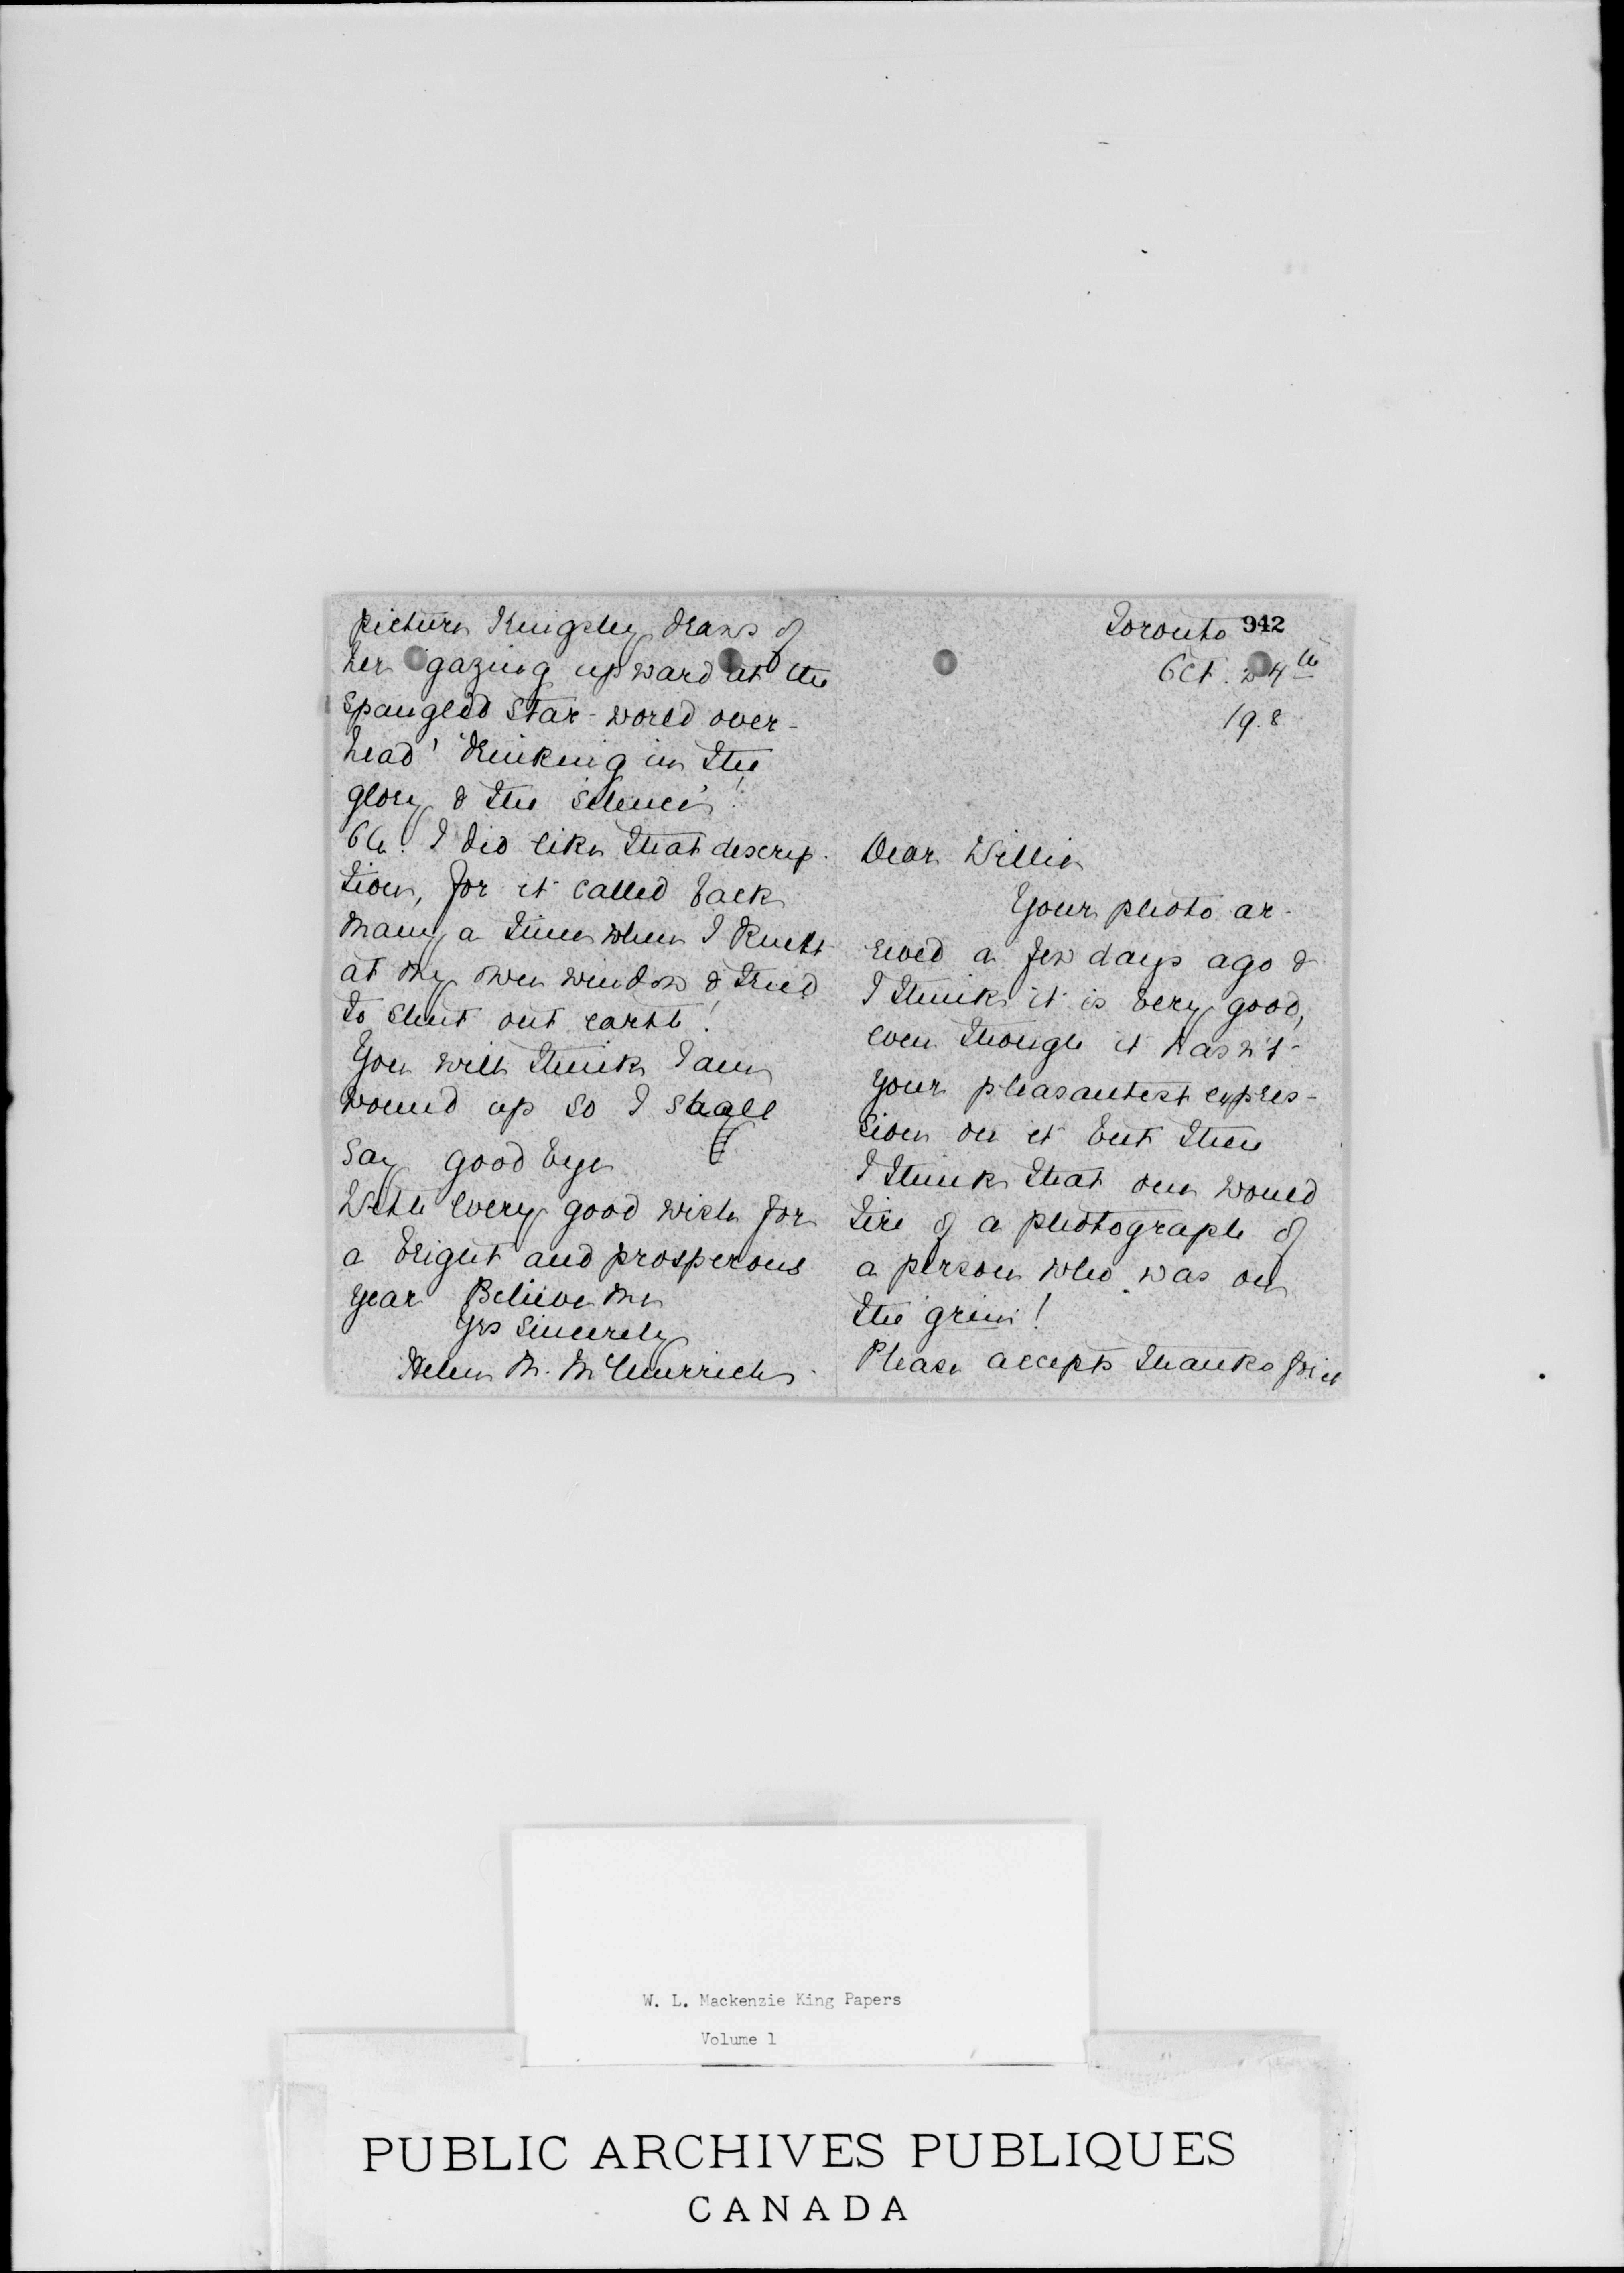 picture Kingsley draws of
her 'gazing upward at the
spangled star-world over-
head' 'drinking in the
glory & the silence'!
Oh! I did like that descrip-
tion, for it called back
many a time when I knelt
at my own window & tried
to shut out earth!
You will think I am
wound up so I shall
say good bye
With every good wish for
a bright and prosperous
year Believe me
Yrs sincerely
Helen M. McMurrich.
Toronto 942
Oct. 24th
Dear Willie
Your photo ar-
rived a few days ago &
I think it is very good,
even though it hasn't
your pleasantest expres-
sion on it but then
I think that one would
tire of a photograph of
a person who was on
the grin!
Please accept thanks for it
W. L. Mackenzie King Papers
Volume 1
PUBLIC ARCHIVES PUBLIQUES
CANADA